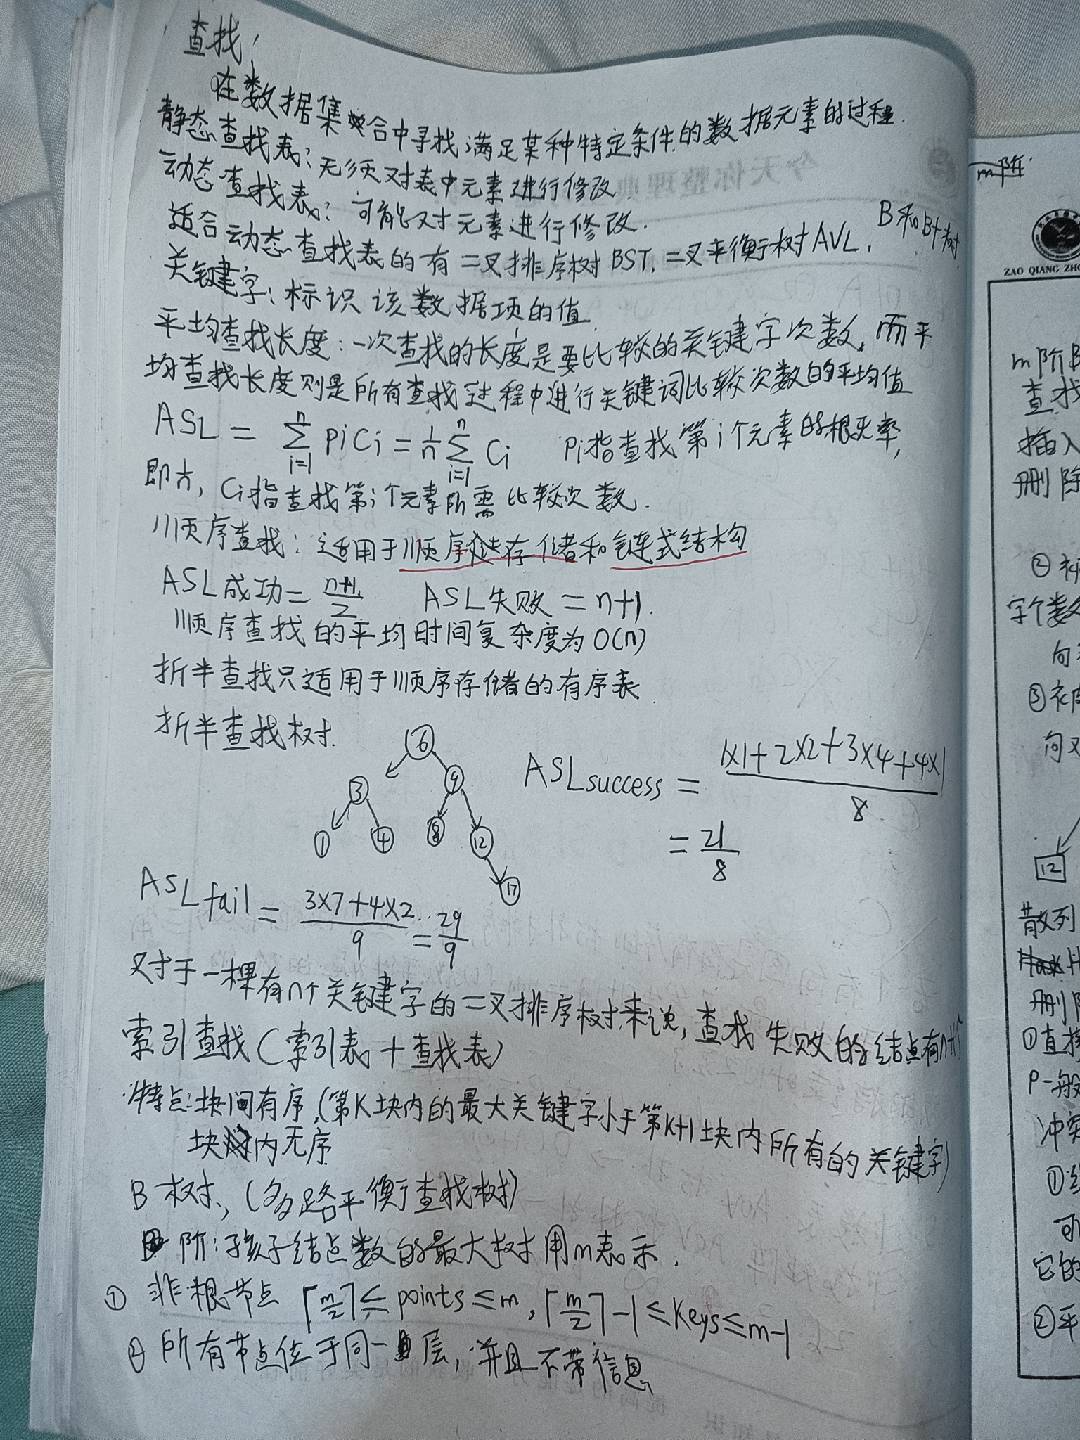 查找:
在数据集合中寻找满足某种特定条件的数据元素的过程.
静态查找表:无须对表中元素进行修改
动态查找表:可能对元素进行修改.
适合动态查找表的有二叉排序树BST,二叉平衡树AVL,B和B+树
关键字:标识该数据项的值
平均查找长度:一次查找的长度是要比较的关键字次数,而平
均查找长度则是所有查找过程中进行关键词比较次数的平均值
ASL = ∑(i=1,n) PiCi = 1/n ∑(i=1,n) Ci Pi指查找第i个元素的概率,
即1/n, Ci指查找第i个元素所需比较次数.
顺序查找:适用于顺序存储和链式结构
ASL成功= (n+1)/2 ASL失败 = n+1.
顺序查找的平均时间复杂度为O(n)
折半查找只适用于顺序存储的有序表
折半查找树
6
3 9
1 4 8 12
17
ASLsuccess = (1x1+2x2+3x4+4x1)/8
= 21/8
ASLfail = (3x7+4x2)/9 = 29/9
对于一棵有n个关键字的二叉排序树来说,查找失败的结点有n+1个
索引查找(索引表+查找表)
特点:块间有序,(第K块内的最大关键字小于第K+1块内所有的关键字)
块内无序
B树,(多路平衡查找树)
阶:孩子结点数的最大树用m表示.
① 非根节点 ⌈m/2⌉ ≤ points ≤ m, ⌈m/2⌉-1 ≤ Keys ≤ m-1
② 所有节点位于同一层,并且不带信息
m阶
ZAO QIANG ZHO
m阶B
查找
插入
删除
②
字个数
向
③
向
12
散列
删除
①直接
P一般
冲突
①
可
它的
②平